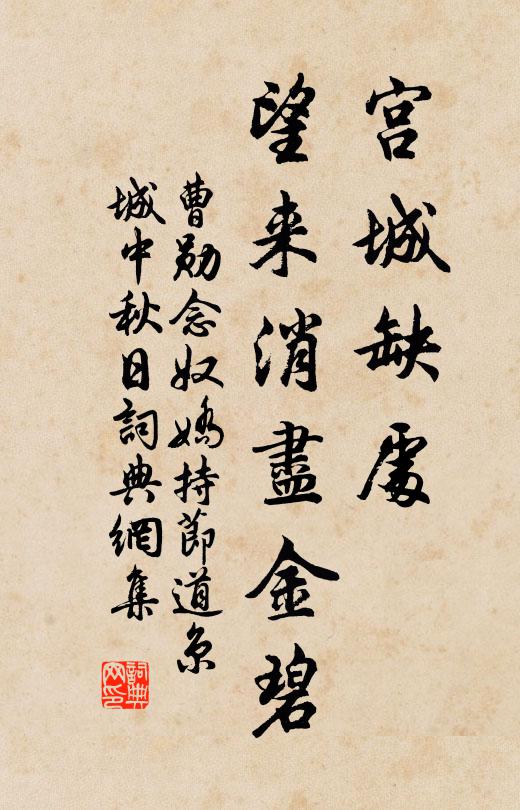 宫城缺處
望来消盡金碧
曹勋念奴嬌持節道京
城中秋日詞典網集
詞典
网印